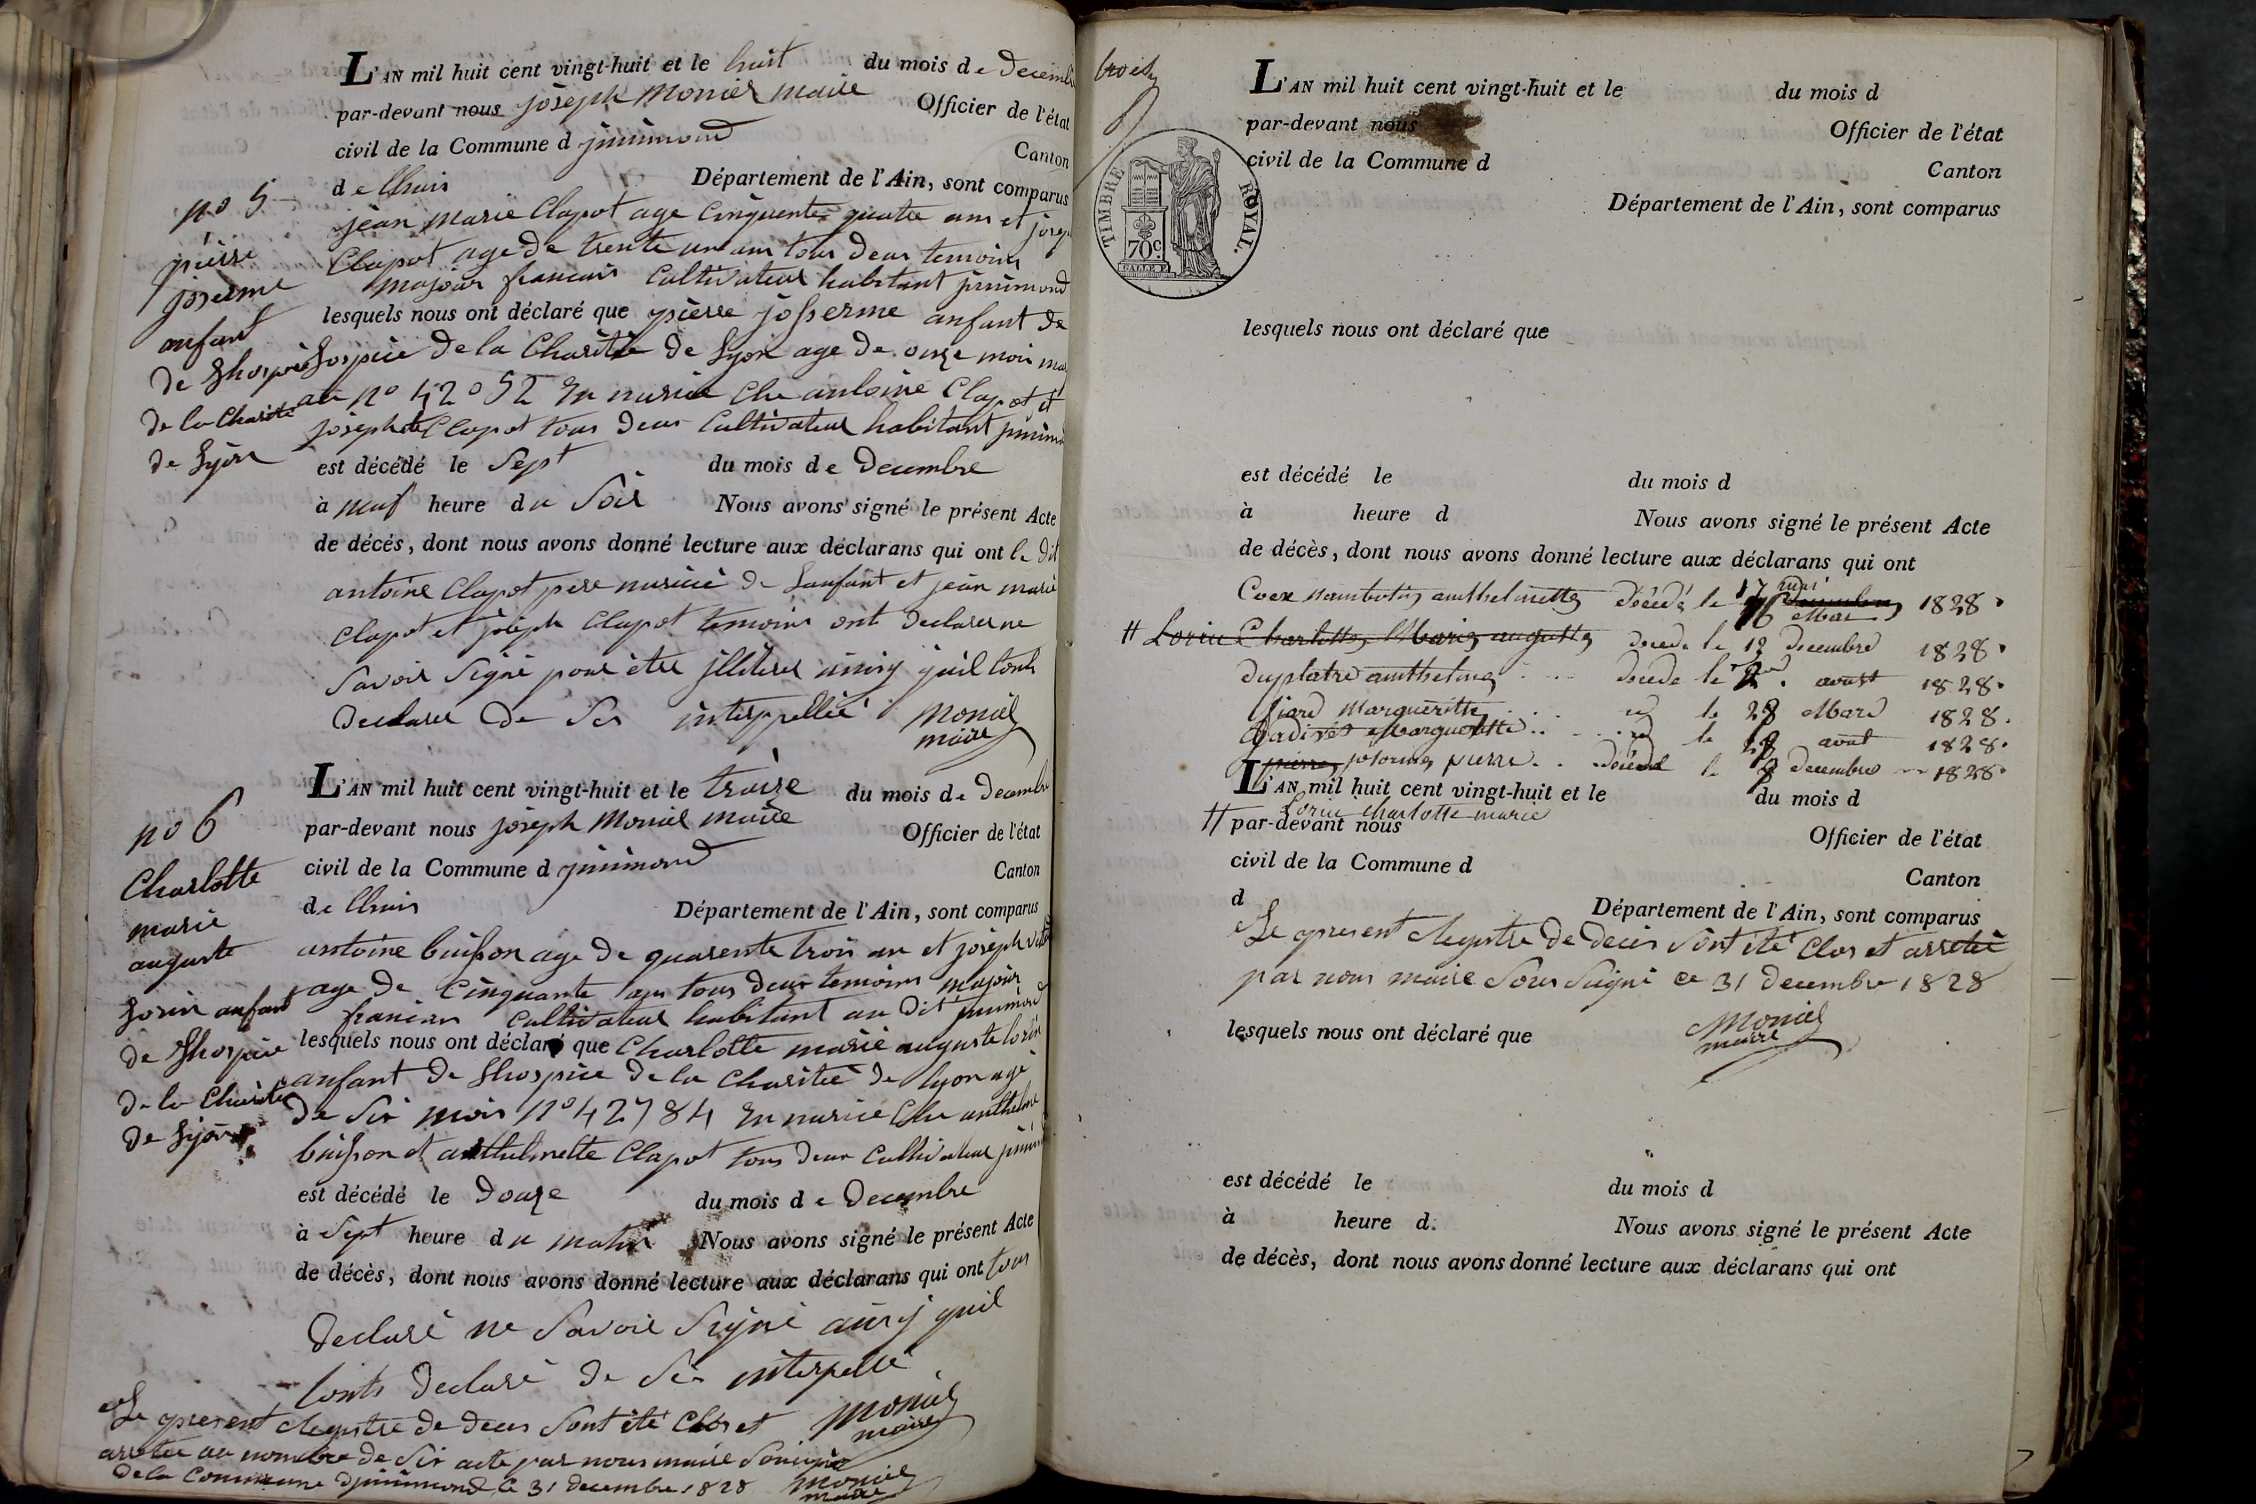 L'AN mil huit cent vingt-huit et le huit du mois de decemb
par-devant nous joseph Moniel maire Officier de l'état
civil de la Commune d jnnimond Canton
de lhuis Département de l'Ain, sont comparus
no 5
jean marie Clapot age cinquente quatre ans et
Clapot age de trente un ans tous deux temoins
majour francais cultivateur habitant jnnimond
pierre
joserme
anfant
de Lhospice
de la Charité
de Lyon
lesquels nous ont déclaré que pierre josserme anfant de
Lospice de la Charitée de Lyon age de onze mois
au no 42052 En nurice Che antoine Clapot et
joseph Clapot tous deux Cultivateur habitant
est décédé le Sept du mois de Decembre
à neuf heure du Soir Nous avons signé le présent Acte
de décés, dont nous avons donné lecture aux déclarans qui ont le dit
antoine Clapot pere nuricié de Lanfant et jean marie
Clapot et joseph Clapot temoins ont declarer ne
Savoir Signé pour être jlliterer ainsy quil lont
Declarer De Ses interppellié Moniel
maire
L'AN mil huit cent vingt-huit et le traize du mois de Decembre
par-devant nous joseph Moniel maire Officier de l'état
civil de la Commune d jnnimond Canton
de lhuis Département de l'Ain, sont comparus
no 6
Charlotte
marie
auguste
Lorin anfant
de Lhospice
de la Charitée
de Lyon
antoine buisson age de quarente trois an et joseph
age de Cinquante ans tous deux temoins majour
francais cultivateur habitant au Dit jnnimond
lesquels nous ont déclaré que Charlotte marie auguste lorin
anfant de Lhospice de la Charitée de lyon agé
de Six mois no 42784 En nurice Che anthelme
buisson et anthelmette Clapot tous deux Cultivateur
est décédé le Douze du mois de Decembre
à Sept heure du matin Nous avons signé le présent Acte
de décès, dont nous avons donné lecture aux déclarans qui ont tous
Declaré ne Savoir Signé ainsy quil
lonts Declaré De Ses interpellé
Moniel
maire
Le present Registre de deces Sont été Clos et
arretée au nombre de Six acte par nous maire
de la Commune djnnimond Ce 31 decembre 1828 Moniel
maire
TIMBRE ROYAL.
70c.
L'AN mil huit cent vingt-huit et le du mois d
par-devant nous Officier de l'état
civil de la Commune d Canton
Département de l'Ain, sont comparus
lesquels nous ont déclaré que
est décédé le du mois d
à heure d Nous avons signé le présent Acte
de décès, dont nous avons donné lecture aux déclarans qui ont
anthelmette décédé le 17 mai 1828.
Mai
# Lorin Charlotte Marie auguste décédé le 12 decembre 1828.
Duplatre anthelme décédé le 2 aoust 1828.
Marguerite id le 28 Mars 1828.
Marguerite id le 28 août 1828.
pierre pierre décédé le 7 decembre 1828.
L'AN mil huit cent vingt-huit et le du mois d
# Lorin Charlotte marie
par-devant nous Officier de l'état
civil de la Commune d Canton
d Département de l'Ain, sont comparus
Le present Registre de deces Sont été Clos et arretée
par nous maire Sous Signé ce 31 decembre 1828
Moniel
maire
lesquels nous ont déclaré que
est décédé le du mois d
à heure d. Nous avons signé le présent Acte
de décès, dont nous avons donné lecture aux déclarans qui ont